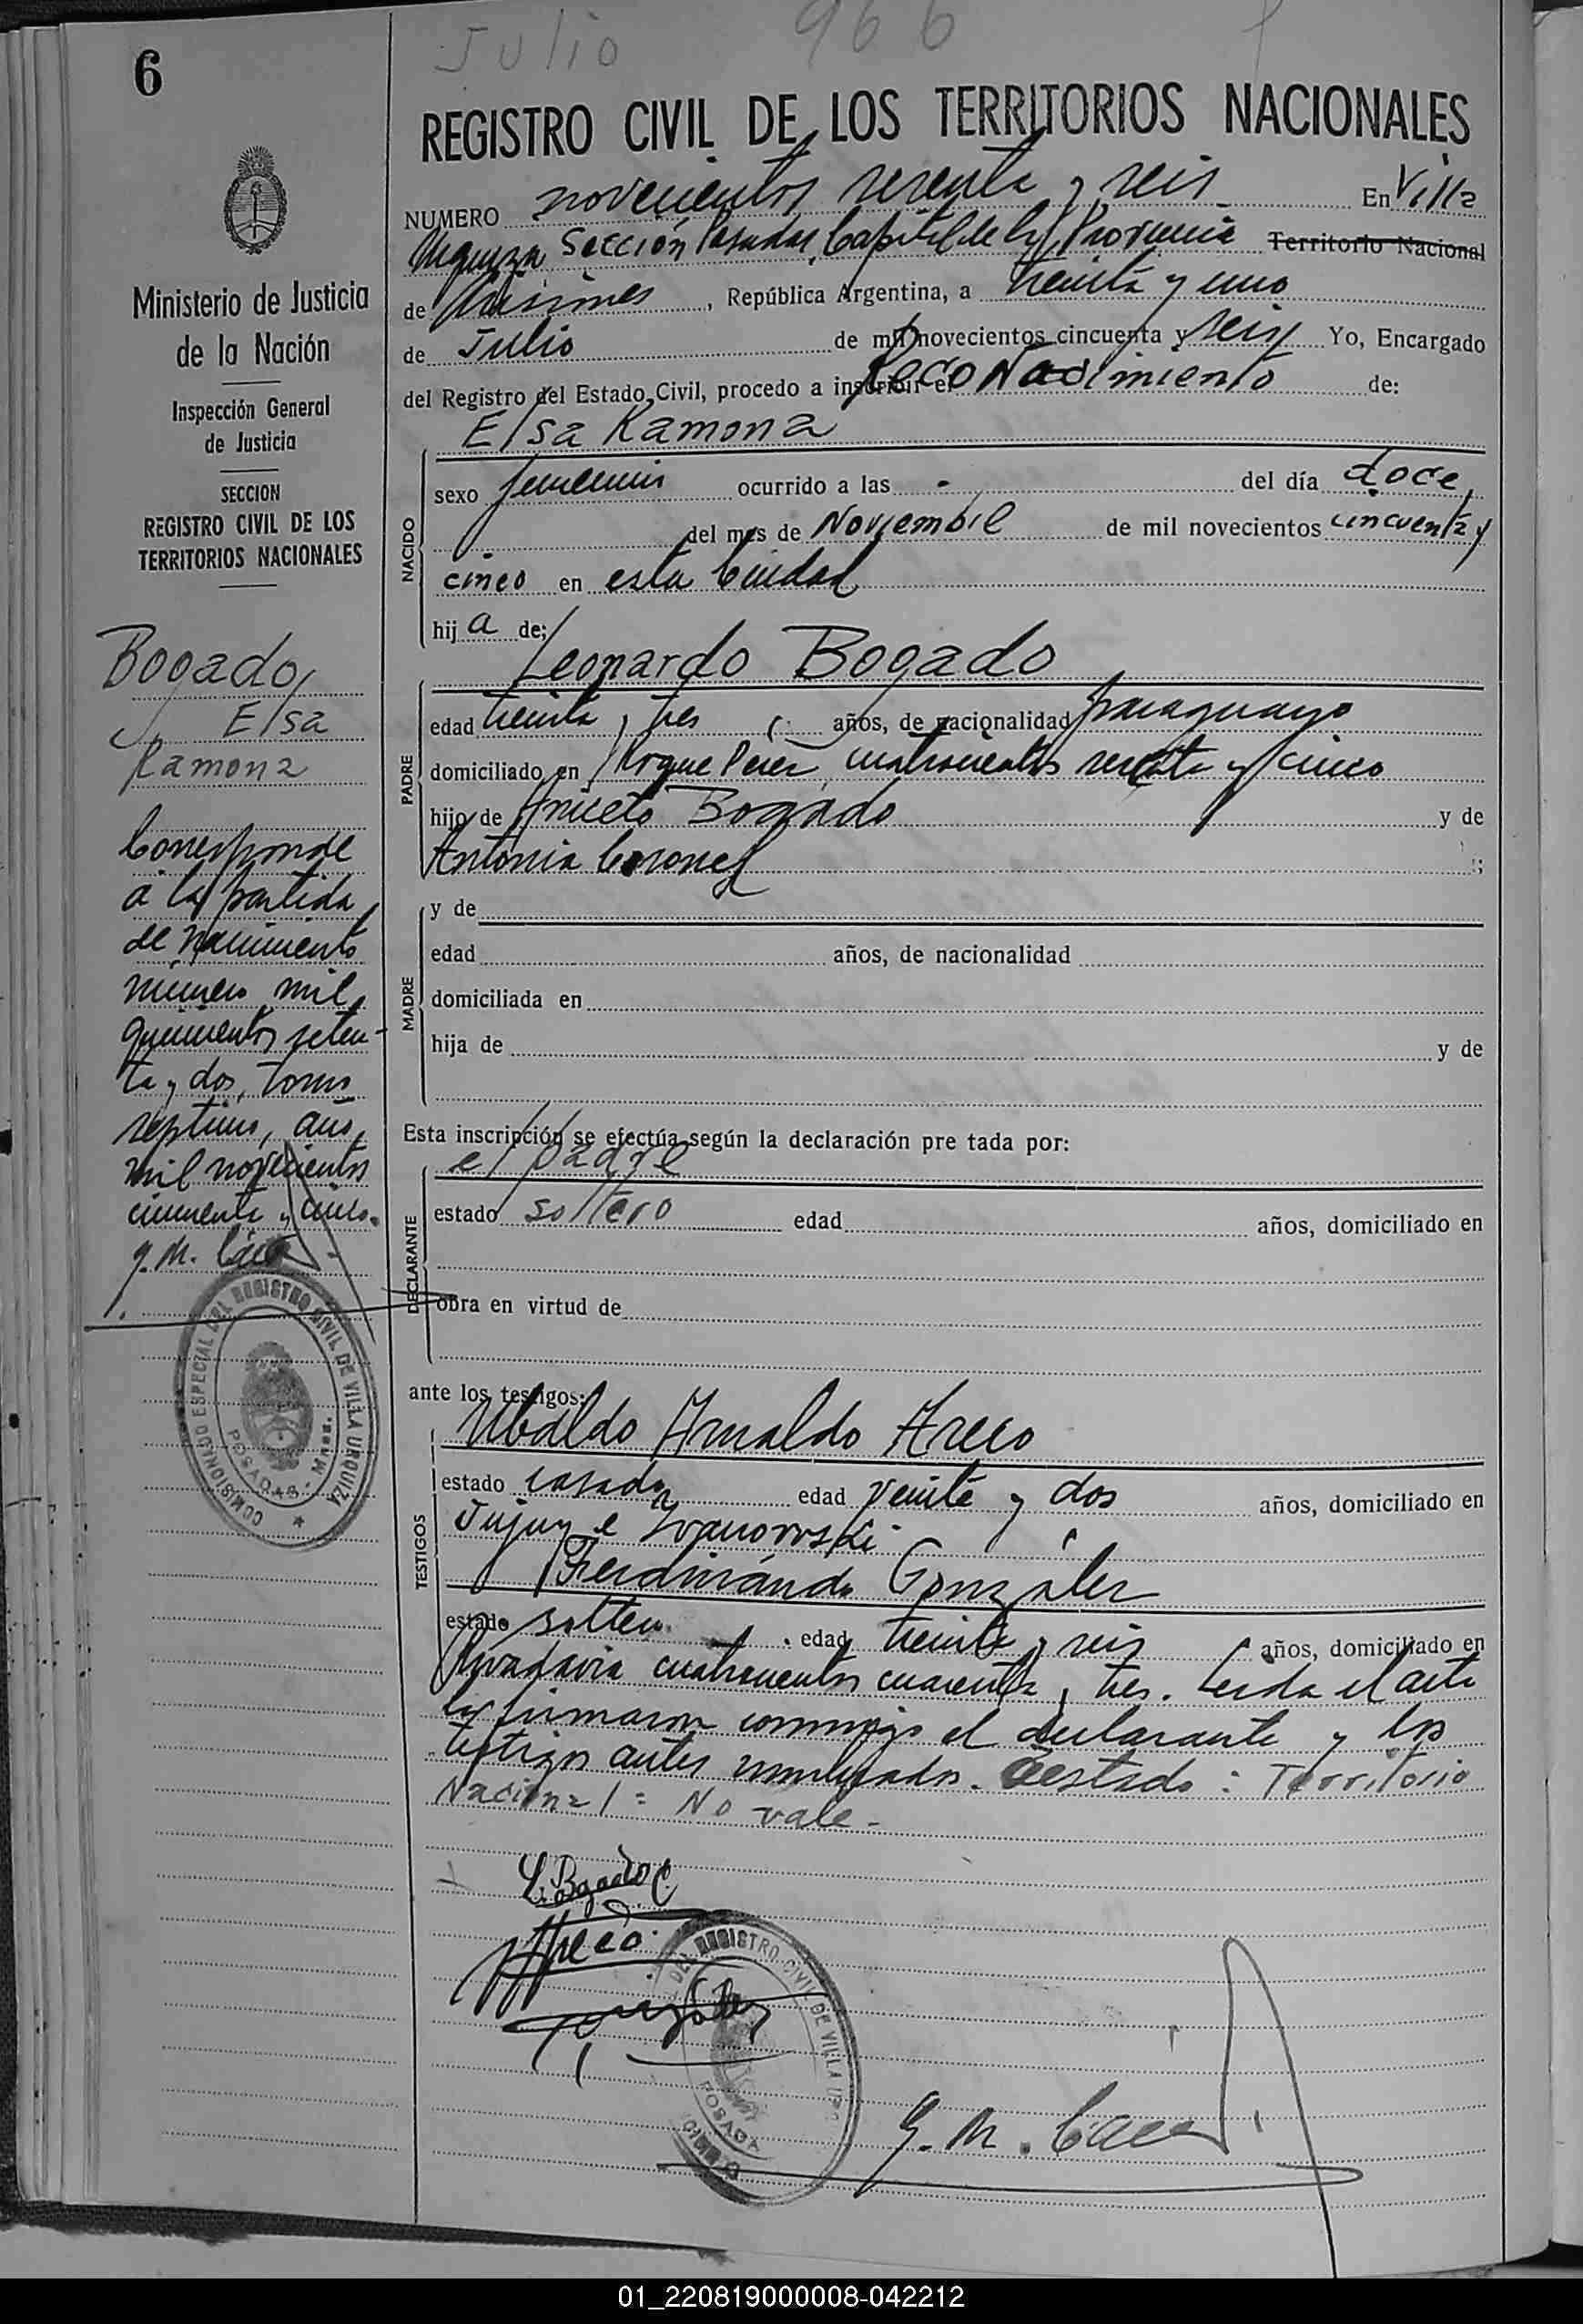 Julio 966
6
REGISTRO CIVIL DE LOS TERRITORIOS NACIONALES
NUMERO novecientos sesenta y seis En Villa
Urquiza Sección Posadas, Capital de la Provincia Territorio Nacional
de Misiones, República Argentina, a treinta y uno
de Julio de mil novecientos cincuenta y seis Yo, Encargado
del Registro del Estado Civil, procedo a inscribir el Reconocimiento de:
Elsa Ramona
NACIDO
sexo femenino ocurrido a las - del día doce,
del mes de Noviembre de mil novecientos cincuenta y
cinco en esta Ciudad
hija de:
Leonardo Bogado
PADRE
edad treinta y tres años, de nacionalidad paraguayo
domiciliado en Roque Perez cuatrocientos sesenta y cinco
hijo de Aniceto Bogado y de
Antonia Coronel ;
MADRE
y de
edad años, de nacionalidad
domiciliada en
hija de y de
Esta inscripción se efectúa según la declaración pre tada por:
el padre
DECLARANTE
estado soltero edad años, domiciliado en
obra en virtud de
ante los testigos:
Ubaldo Arnaldo Areco
TESTIGOS
estado casado edad veinte y dos años, domiciliado en
Jujuy e Ivanovski
Ferdinando González
estado soltero edad treinta y seis años, domiciliado en
Rivadavia cuatrocientos cuarenta y tres. Leida el acta
la firmaron conmigo el declarante y los
testigos antes nombrados. Testado: Territorio
Nacional = No vale-
L. Bogado C.
Areco
González
G. M.
Ministerio de Justicia
de la Nación
Inspección General
de Justicia
SECCION
REGISTRO CIVIL DE LOS
TERRITORIOS NACIONALES
Bogado,
Elsa
Ramona
Corresponde
a la partida
de nacimiento
número mil
quinientos seten-
ta y dos, tomo
septimo, año
mil novecientos
cincuenta y cinco.
G. M.
COMISIONADO ESPECIAL DEL REGISTRO CIVIL DE VILLA URQUIZA
POSADAS - Mnes.
DEL REGISTRO CIVIL DE VILLA
POSADA
01_220819000008-042212